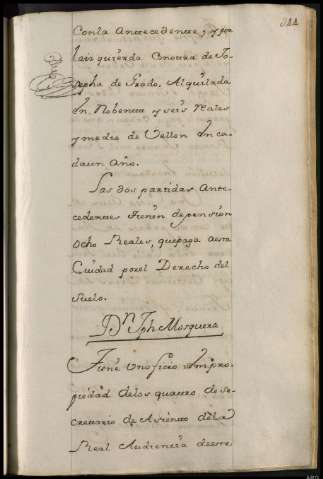 344
Con la Antecedente; y por
la izquierda Con otra de Jo-
sepha de Prado, Alquilada
En Nobenta y seis reales
y medio de Vellon En ca-
da un Año.
Las dos partidas Ante-
cedentes tienen de pensión
Ocho Reales, que paga a esta
Ciudad por el Derecho del
suelo.
Dn. Jph Mosquera
Tiene Un oficio En pro-
piedad de los quatro de se-
cretario de Asiento de la
Real Audiencia de este